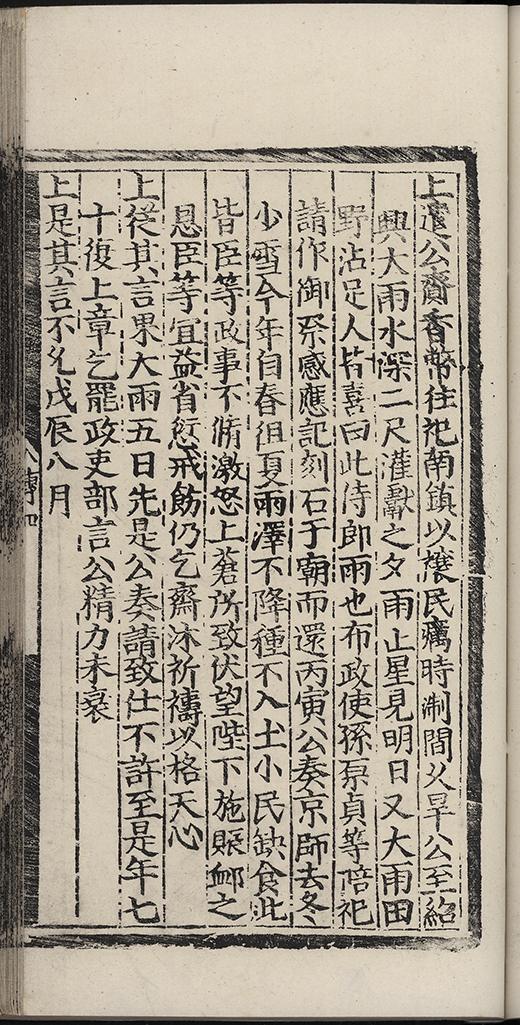 上遣公齎香幣往祀南鎮以禳民癘時淛間久旱公至紹
興大雨水深二尺灌獻之夕雨止星見明日又大雨田
野沾足人皆喜曰此侍郎雨也布政使孫原貞等陪祀
請作御祭感應記刻石于廟而還丙寅公奏京師去冬
少雪今年自春徂夏雨澤不降種不入土小民缺食此
皆臣等政事不脩激怒上蒼所致伏望陛下施賑䘏之
恩臣等宜益省愆戒飭仍乞齋沐祈禱以格天心
上從其言果大雨五日先是公奏請致仕不許至是年七
十復上章乞罷政吏部言公精力未衰
上是其言不允戊辰八月
八傳四